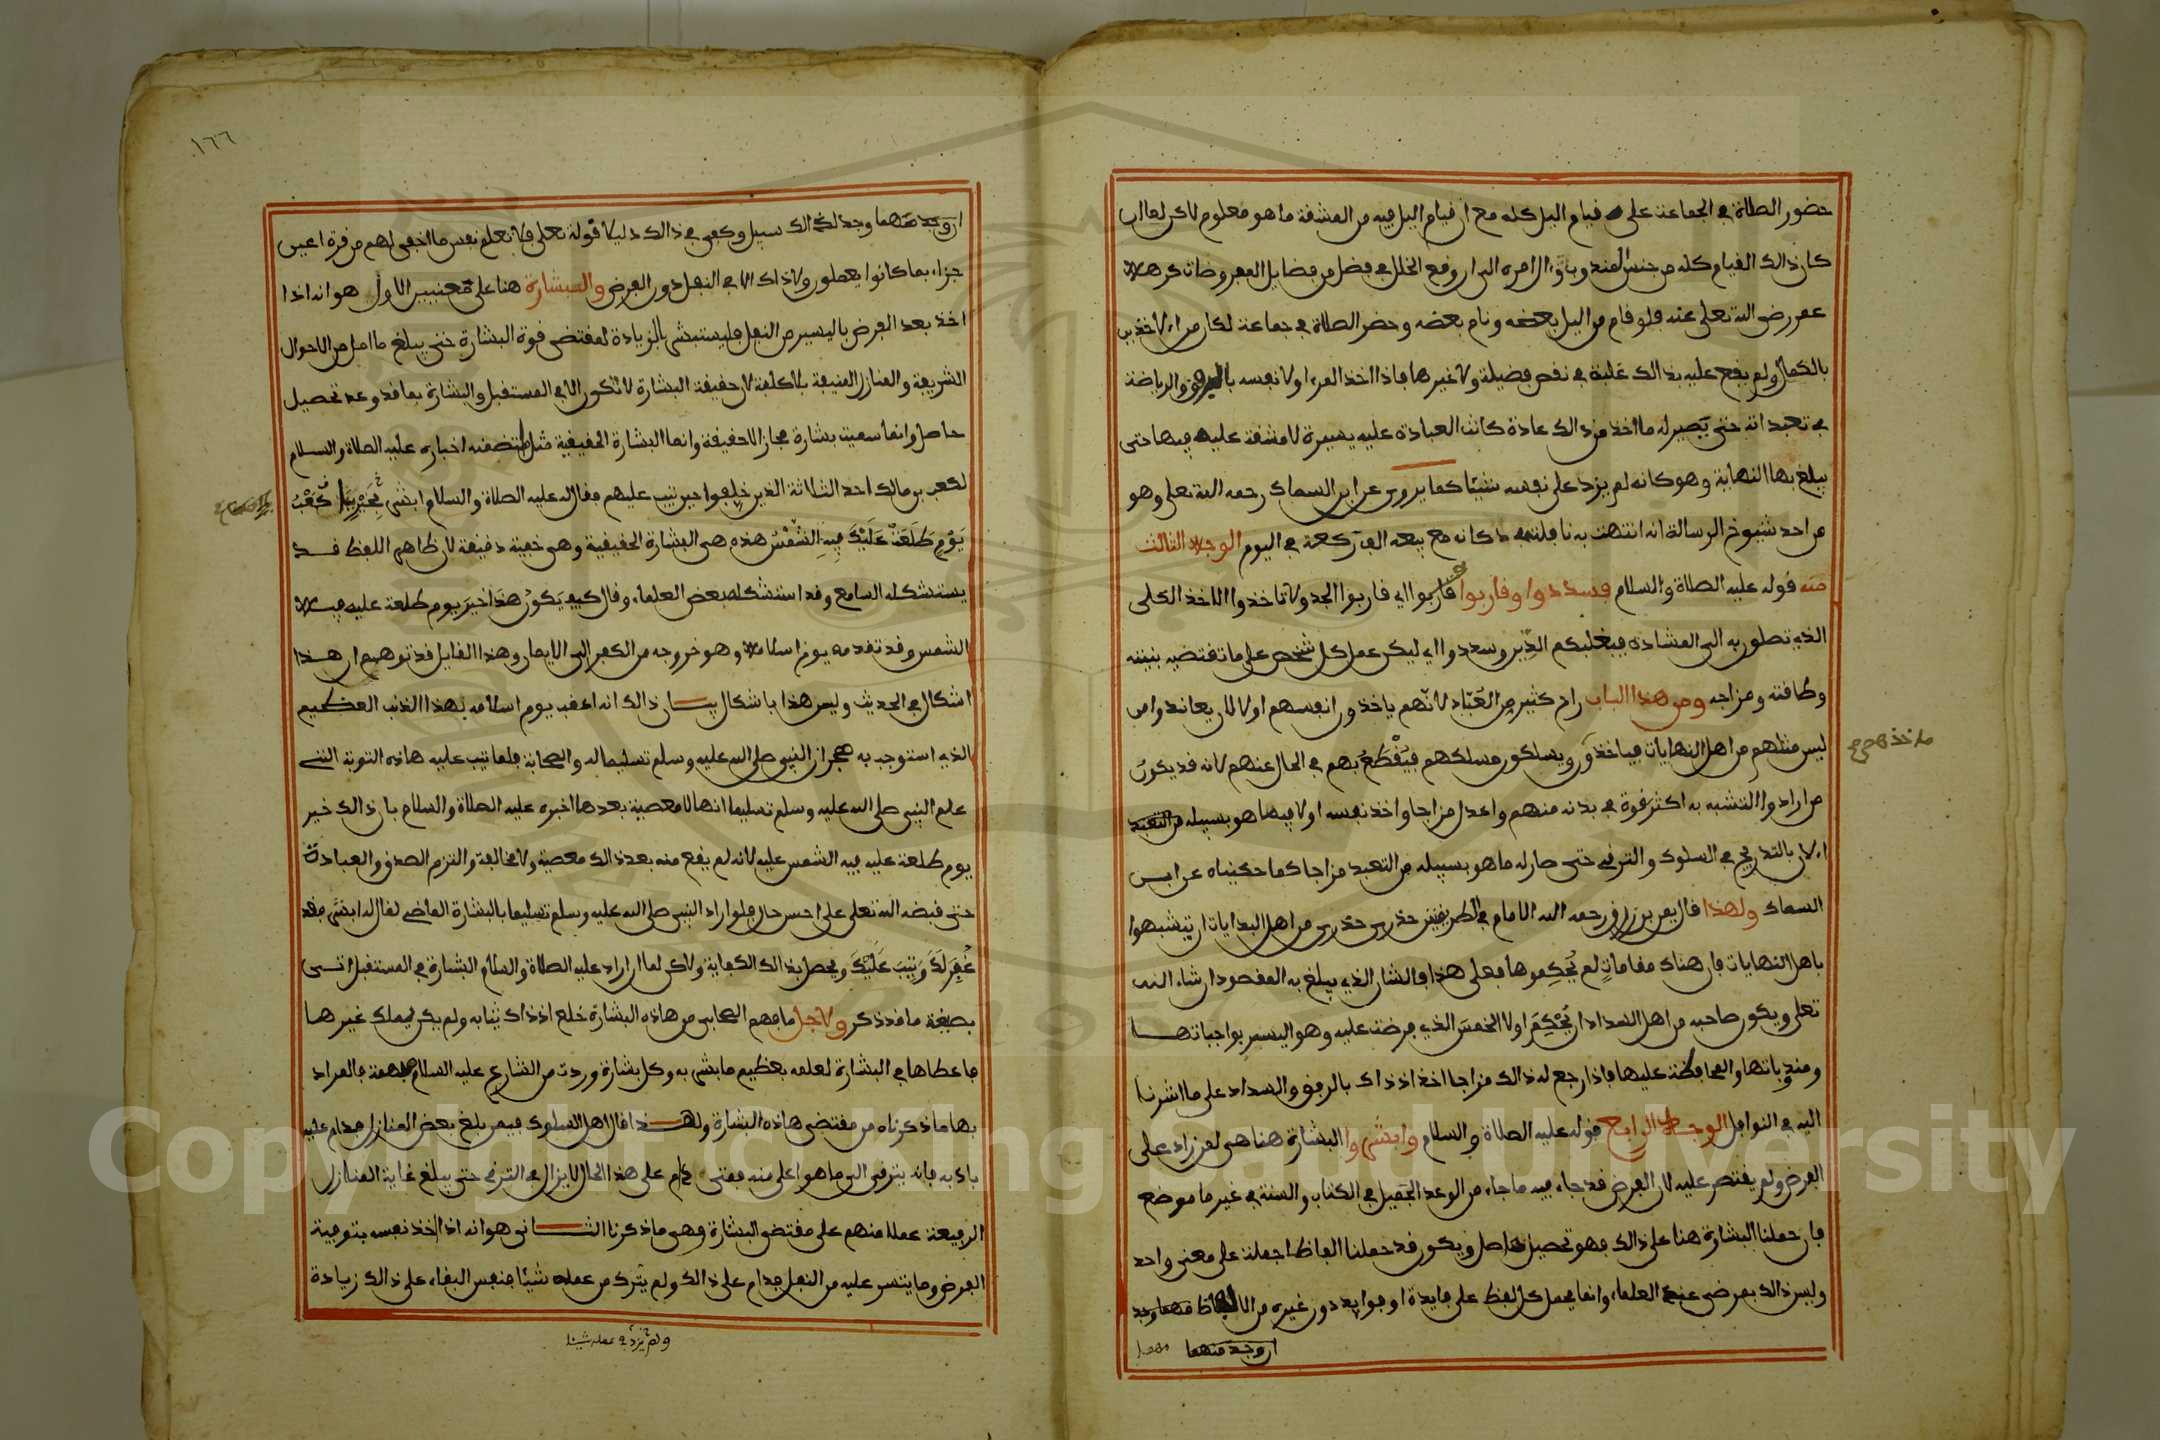 حضور الصلاة في الجماعة على قيام اليل كله مع ان قيام اليل فيه من المشقة ما هو معلوم لاكن لما ان
كان ذالك القيام كله من جنس المندوبات الامره الى ان وقع الخلل في فضل من فضايل الفجر وضات كرهه
عمر رضي الله تعلى عنه فلو قام من اليل بعضه ونام بعضه وحضر الصلاة في جماعة لكان من الاخذين
بالكمال ولم يقع عليه بذالك غلبة في نقص فضيلة ولا غيرها فاذا اخذ المرء اولا نفسه بالرفق والرياضة
في تعبداته حتى يصير له ما اخذ من ذالك عادة كانت العبادة عليه يسيرة لا مشقة عليه فيها حتى
يبلغ بها النهاية وهو كانه لم يزد على نفسه شيئا كما يروى عن ابن السماك رحمه الله تعلى وهو
من احد شيوخ الرسالة انه انتهت به نافلته في دكانه مع بيعه الف ركعة في اليوم الوجه الثالث
منه قوله عليه الصلاة والسلام فسددوا وقاربوا قاربوا اي قاربوا الجد ولا تاخذوا الاخذ الكلى
الذي تصلون به الى المشادة فيغلبكم الدين وسددوا اي ليكن عمل كل شخص على ما تقتضيه بنيته
وطاقته ومزاجه ومن هذا الباب رام كثير من العباد لانهم ياخذون انفسهم اولا لان يعاندوا من
ليس مثلهم من اهل النهايات فياخذون ويسلكون مسلكهم فيقطع بهم في الحال عنهم لانه قد يكون
من ارادوا التشبه به اكثر قوة في بدنه منهم واعدل مزاجا واخذ نفسه اولا فيما هو بسبيله من التعبد
الان بالتدريج في السلوك والترقي حتى صار له ما هو بسبيله من التعبد مزاجا كما حكيناه عن ابن
السماك ولهذا قال يمن بن رزق رحمه الله الامام في الطريقتين حذرى حذرى من اهل البدايات ان يتشبهوا
باهل النهايات فان هناك مقامات لم يحكموها فعلى هذا فالشان الذي يبلغ به المقصود ان شاء الله
تعلى ويكون صاحبه من اهل السداد ان يحكم اولا الخمس الذي فرضت عليه وهو اليسير بواجباتها
ومندوباتها والمحافظة عليها فاذا رجع له ذالك مزاجا اخذ اذ ذاك بالرفق والسداد على ما اشرنا
اليه في النوافل الوجه الرابع قوله عليه الصلاة والسلام وابشروا البشارة هنا هي لمن زاد على
الفرض ولم يقتصر عليه لان الفرض قد جاء فيه ما جاء من الوعد الجميل في الكتاب والسنة في غير ما موضع
فان حملنا البشارة هنا على ذالك فهو تحصيل حاصل ويكون قد حملنا الفاظا جملة على معنى واحد
وليس ذالك بمرضى عند العلماء وانما يحمل كل لفظ على فايدة او فوايد دون غيره من الالفاظ مهما وجد
ان وجد منهما
ما خذهم
١٦٦
ان وجد منهما وجد لذالك سبيل وكفى في ذالك دليلا قوله تعلى فلا تعلم نفس ما اخفي لهم من قرة اعين
جزاء بما كانوا يعملون ولا ذاك الا في النفل دون الفرض والبشارة هنا على معنيين الاول هو انه اذا
اخذ بعد الفرض باليسير من النفل فليستبشر بالزيادة لمقتضى قوة البشارة حتى يبلغ ما امل من الاحوال
الشريفة والمنازل المنيفة بلا كلفة لان حقيقة البشارة لا تكون الا في المستقبل والبشارة بما قد وعد تحصيل
حاصل وانما سميت بشارة مجازا لا حقيقة وانما البشارة الحقيقية مثل ما تضمنه اخباره عليه الصلاة والسلام
لكعب بن مالك احد الثلاثة الذين خلفوا حين تيب عليهم فقال له عليه الصلاة والسلام ابشر بخير يا كعب
يوم طلعت عليك فيه الشمس هذه هي البشارة الحقيقية وهي خفية دقيقة لان ظاهر اللفظ قد
يستشكله السامع وقد استشكله بعض العلماء وقال كيف يكون هذا خير يوم طلعة عليه فيه
الشمس وقد تقدمه يوم اسلامه وهو خروجه من الكفر الى الايمان وهذا القايل قد توهم ان هذا
اشكال في الحديث وليس هذا باشكال بيان ذالك انه اعقب يوم اسلامه بهذا الذنب العظيم
الذي استوجب به هجران النبي صلى الله عليه وسلم تسليما له والصحابة فلما تيب عليه هاذه التوبة التي
علم النبي صلى الله عليه وسلم تسليما انها لا معصية بعدها اخبره عليه الصلاة والسلام بان ذالك خير
يوم طلعة عليه فيه الشمس عليه لانه لم يقع منه بعد ذالك معصية ولا مخالفة والتزم الصدق والعبادة
حتى قبضه الله تعلى على احسن حال فلو اراد النبي صلى الله عليه وسلم تسليما بالبشارة الماضي لقال له ابشر فقد
غفر لك وتيب عليك ويحصل بذالك الكفاية ولاكن لما ان اراد عليه الصلاة والسلام البشارة في المستقبل اتى
بصيغة ما قد ذكر ولاجل ما فهم الصحابي من هاذه البشارة خلع اذ ذاك ثيابه ولم يكن يملك غيرها
فاعطاها في البشارة لعلمه بعظيم ما بشر به وكل بشارة وردت من الشارع عليه السلام مبهمة فالمراد
بها ما ذكرناه من مقتضى هاذه البشارة ولهذا قال اهل السلوك فيمن بلغ بعض المنازل فدام عليه
بادبه فانه يترقى الى ما هو اعلى منه فمتى دام على هذا الحال لا يزال في الترقي حتى يبلغ غاية المنازل
الرفيعة عملا منهم على مقتضى البشارة وهي ما ذكرنا الثاني هو انه اذا اخذ نفسه بتوفية
الفرض وما يتسر عليه من النفل فدام على ذالك ولم يترك من عمله شيئا فنفس البقاء على ذالك زيادة
ولم يزد في عمله شيئا
Copyright © King Saud University